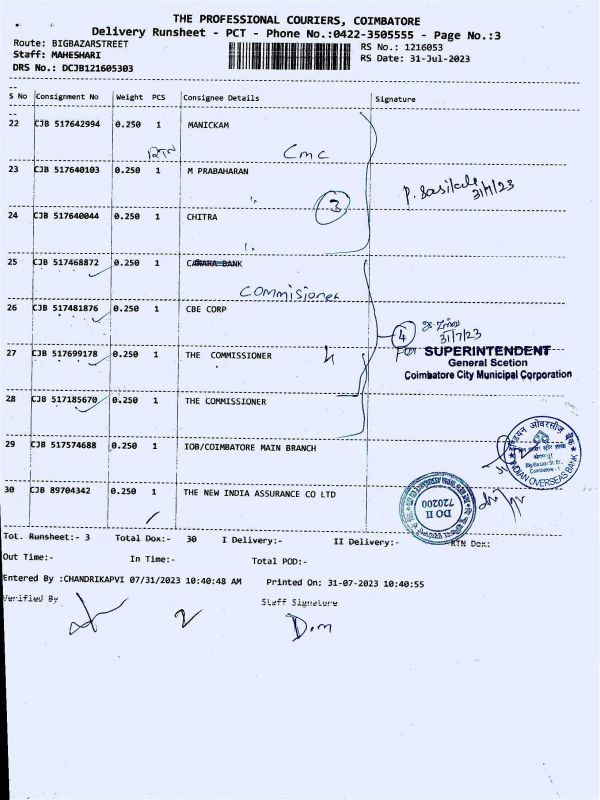 THE PROFESSIONAL COURIERS, COIMBATORE
Delivery Runsheet - PCT - Phone No.:0422-3505555 - Page No.:3
Route: BIGBAZARSTREET
RS No.: 1216053
Staff: MAHESHARI
RS Date: 31-Jul-2023
DRS No.: DCJB121605303
S No Consignment No Weight PCS Consignee Details Signature
22 CJB 517642994 0.250 1 MANICKAM
RTN CMC
23 CJB 517640103 0.250 1 M PRABAHARAN
3 P. Sasikala 31/7/23
24 CJB 517640044 0.250 1 CHITRA
25 CJB 517468872 0.250 1 CANARA BANK
Commisioner
26 CJB 517481876 0.250 1 CBE CORP
4 31/7/23
27 CJB 517699178 0.250 1 THE COMMISSIONER
For SUPERINTENDENT
General Scetion
Coimbatore City Municipal Corporation
28 CJB 517185670 0.250 1 THE COMMISSIONER
29 CJB 517574688 0.250 1 IOB/COIMBATORE MAIN BRANCH
इण्डियन ओवरसीज़ बैंक
Big Bazaar St. Br.
Coimbatore - 1
INDIAN OVERSEAS BANK
30 CJB 89704342 0.250 1 THE NEW INDIA ASSURANCE CO LTD
DO II
720200
Tot. Runsheet:- 3 Total Dox:- 30 I Delivery:- II Delivery:- RTN Dox:
Out Time:- In Time:- Total POD:-
Entered By :CHANDRIKAPVI 07/31/2023 10:40:48 AM Printed On: 31-07-2023 10:40:55
Verified By Staff Signature
D.m